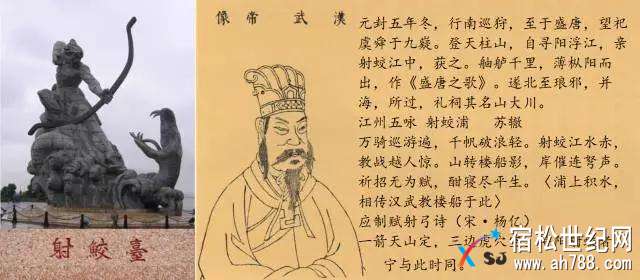 射蛟臺
漢武帝像
元封五年冬，行南巡狩，至于盛唐，望祀
虞舜于九嶷。登天柱山，自寻阳浮江，亲
射蛟江中，获之。舳舻千里，薄枞阳而
出，作《盛唐之歌》。遂北至琅邪，并
海，所过，礼祠其名山大川。
江州五咏 射蛟浦 苏辙
万骑巡游遍，千帆破浪轻。射蛟江水赤，
教战越人惊。山转楼船影，岸催连弩声。
祈招无为赋，酣寝尽平生。〈浦上积水，
相传汉武教楼船于此〉
应制赋射弓诗（宋·杨亿）
一箭天山定，三边虎穴
宁与此时同
SJ
宿松世纪网
www.ah788.com